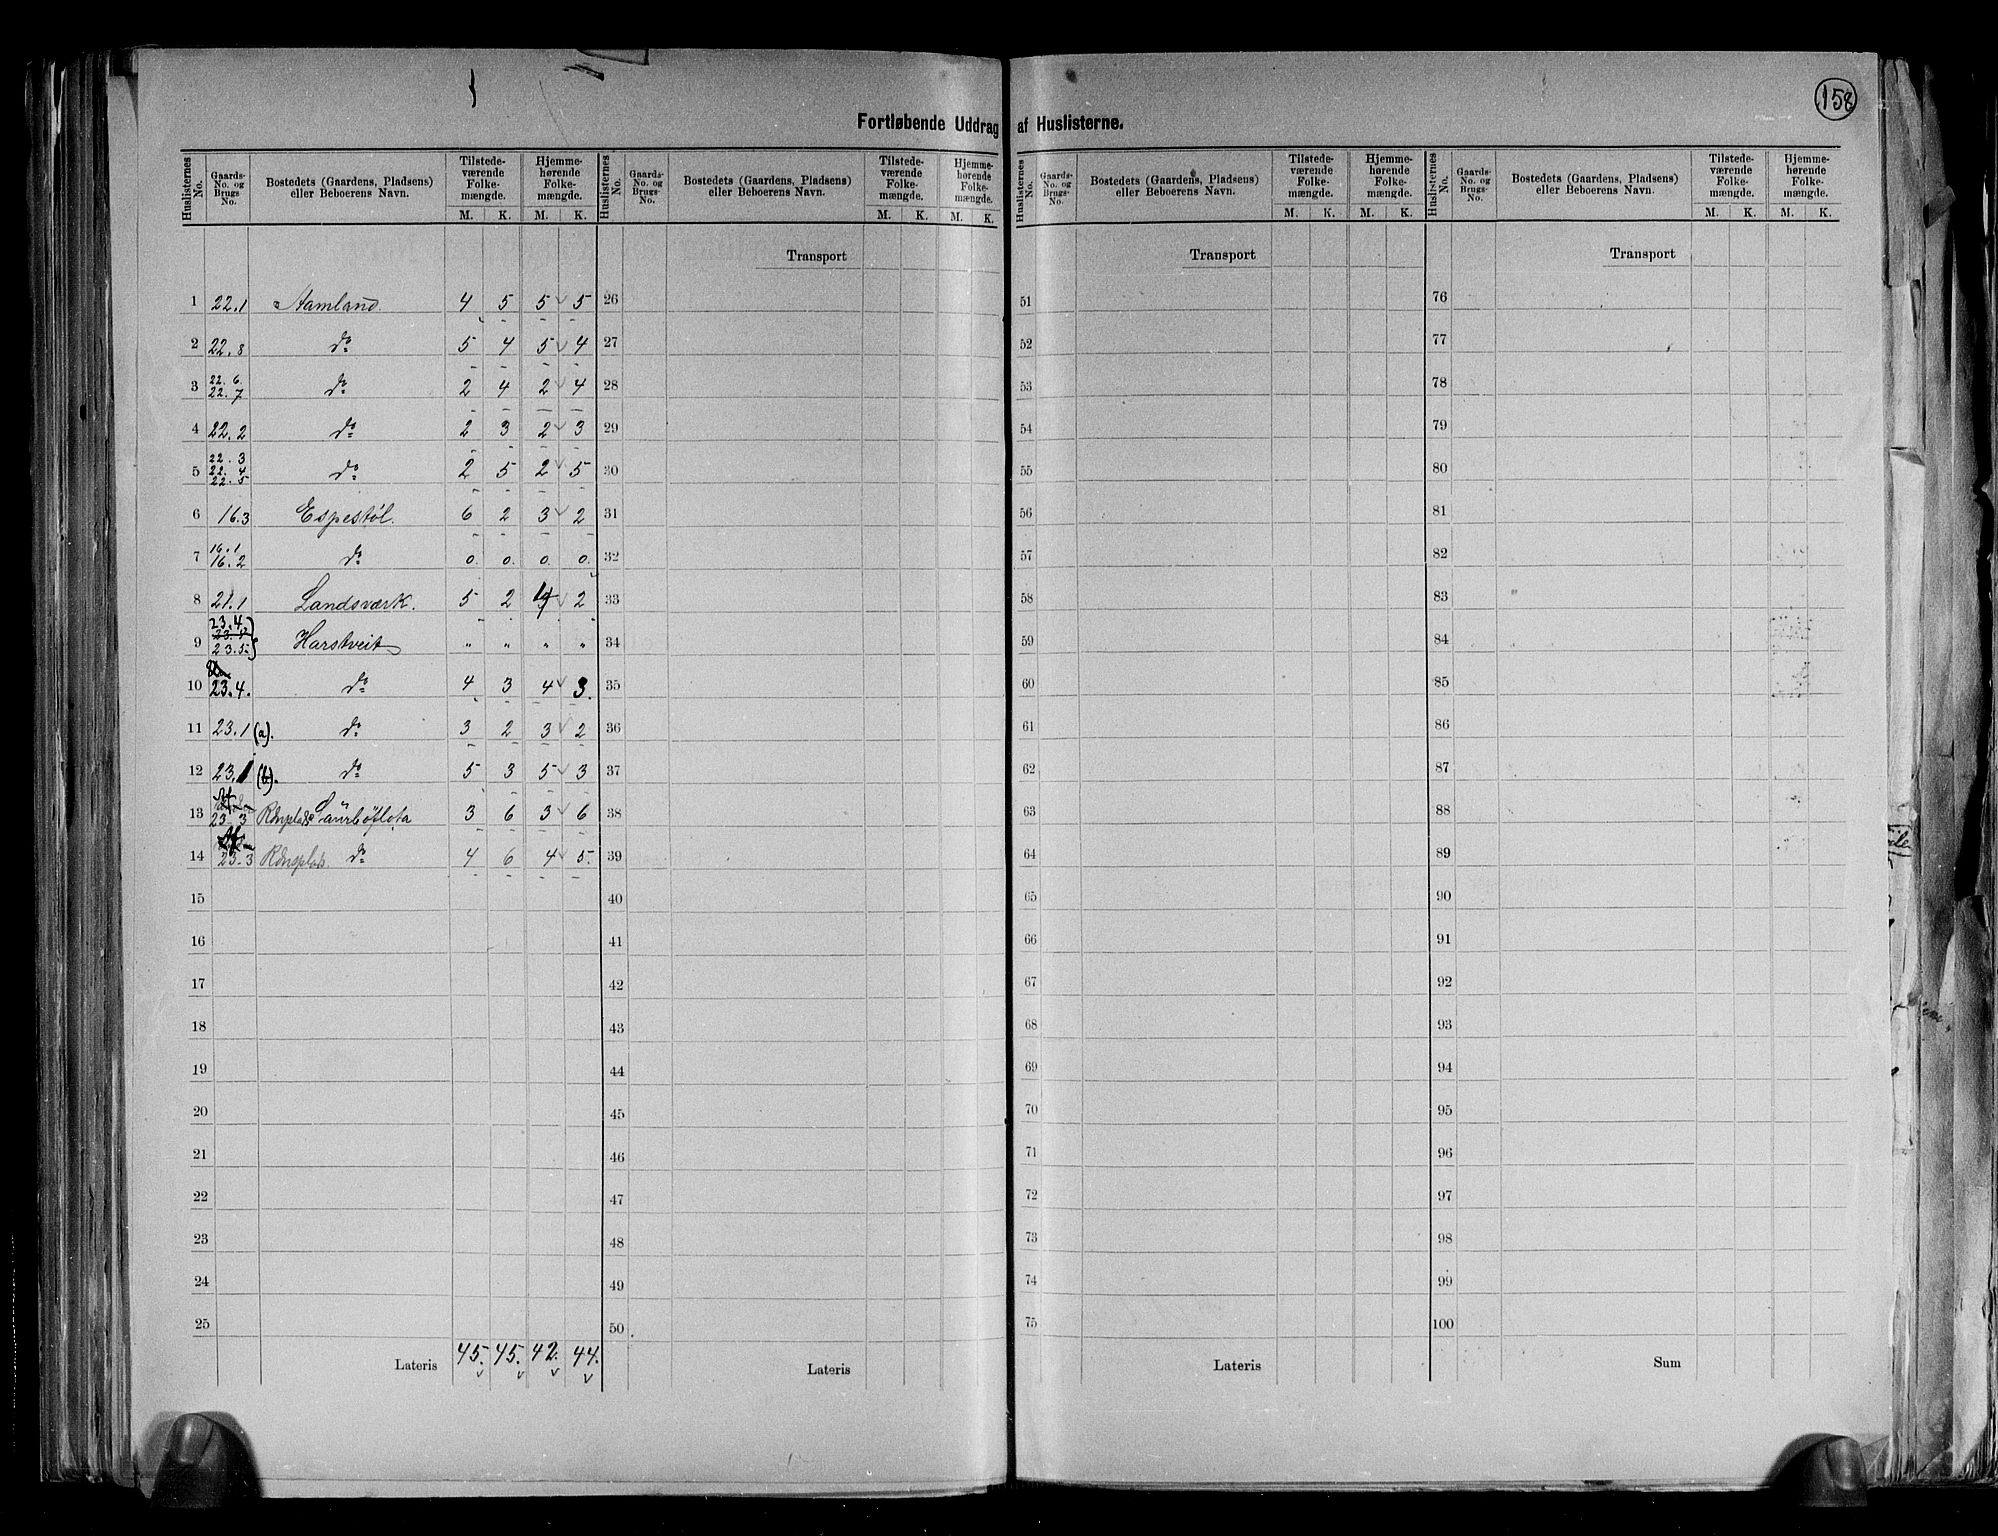 158
Fortløbende Uddrag af Huslisterne.
Huslisternes No. Gaards-No. og Brugs-No. Bostedets (Gaardens, Pladsens) eller Beboerens Navn. Tilstede-værende Folke-mængde. M. K. Hjemme-hørende Folke-mængde. M. K.
Huslisternes No. Gaards-No. og Brugs-No. Bostedets (Gaardens, Pladsens) eller Beboerens Navn. Tilstede-værende Folke-mængde. M. K. Hjemme-hørende Folke-mængde. M. K.
Huslisternes No. Gaards-No. og Brugs-No. Bostedets (Gaardens, Pladsens) eller Beboerens Navn. Tilstede-værende Folke-mængde. M. K. Hjemme-hørende Folke-mængde. M. K.
Huslisternes No. Gaards-No. og Brugs-No. Bostedets (Gaardens, Pladsens) eller Beboerens Navn. Tilstede-værende Folke-mængde. M. K. Hjemme-hørende Folke-mængde. M. K.
Transport Transport Transport
1 22.1 Aamland. 4 5 5 5 26 51 76
2 22.8 do 5 4 5 4 27 52 77
3 22.6. 22.7 do 2 4 2 4 28 53 78
4 22.2 do 2 3 2 3 29 54 79
5 22.3 22.4 22.5 do 2 5 2 5 30 55 80
6 16.3 Espestøl. 6 2 3 2 31 56 81
7 16.1 16.2 do 0. 0. 0. 0. 32 57 82
8 21.1 Landsværk. 5 2 2 33 58 83
9 23.4. 23.5 Harstveit " " " " 34 59 84
10 23.4. do 4 3 4 3. 35 60 85
11 23.1 (a). do 3 2 3 2 36 61 86
12 23.1 (b). do 5 3 5 3 37 62 87
13 23.3 3 6 3 6 38 63 88
14 23.3 do 4 6 4 5. 39 64 89
15 40 65 90
16 41 66 91
17 42 67 92
18 43 68 93
19 44 69 94
20 45 70 95
21 46 71 96
22 47 72 97
23 48 73 98
24 49 74 99
25 50 75 100
Lateris 45. 45. 42. 44. Lateris Lateris Sum